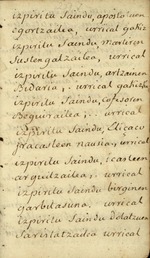 izpiritu Saindu, apostoluen
egoitzailea, urrical gakiz
izpiritu Saindu, Martirien
Sustengatzailea, urrical
izpiritu Saindu, artzainen
Bidaria, urrical gakizku
izpiritu Saindu, Cofesoren
Beguiraillea, urrical
izpiritu Saindu, Elicaco
iracasteen nausia, urrical
izpiritu Saindu, icasteen
arguitzailea, urrical
izpiritu Saindu, birginen
garbitasuna, urrical
izpiritu Saindu dolatzuen
urrical